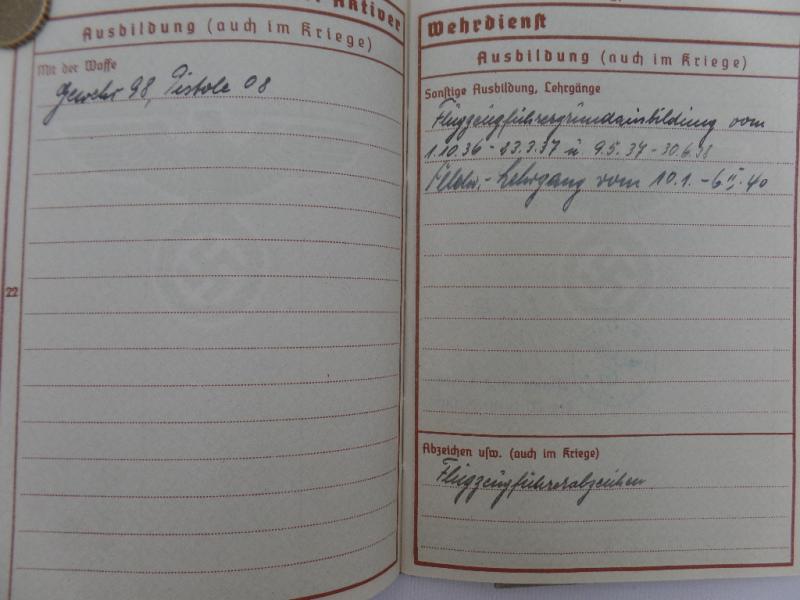 Aktiver
Ausbildung (auch im Kriege)
Mit der Waffe
Gewehr 98, Pistole 08
22
Wehrdienst
Ausbildung (auch im Kriege)
Sonstige Ausbildung, Lehrgänge
Flugzeugführergrundausbildung vom
1.10.36 - 23.3.37 u. 9.5.37 - 30.6.38
Lehrgang vom 10.1. - 6.II.40
Abzeichen usw. (auch im Kriege)
Flugzeugführerabzeichen